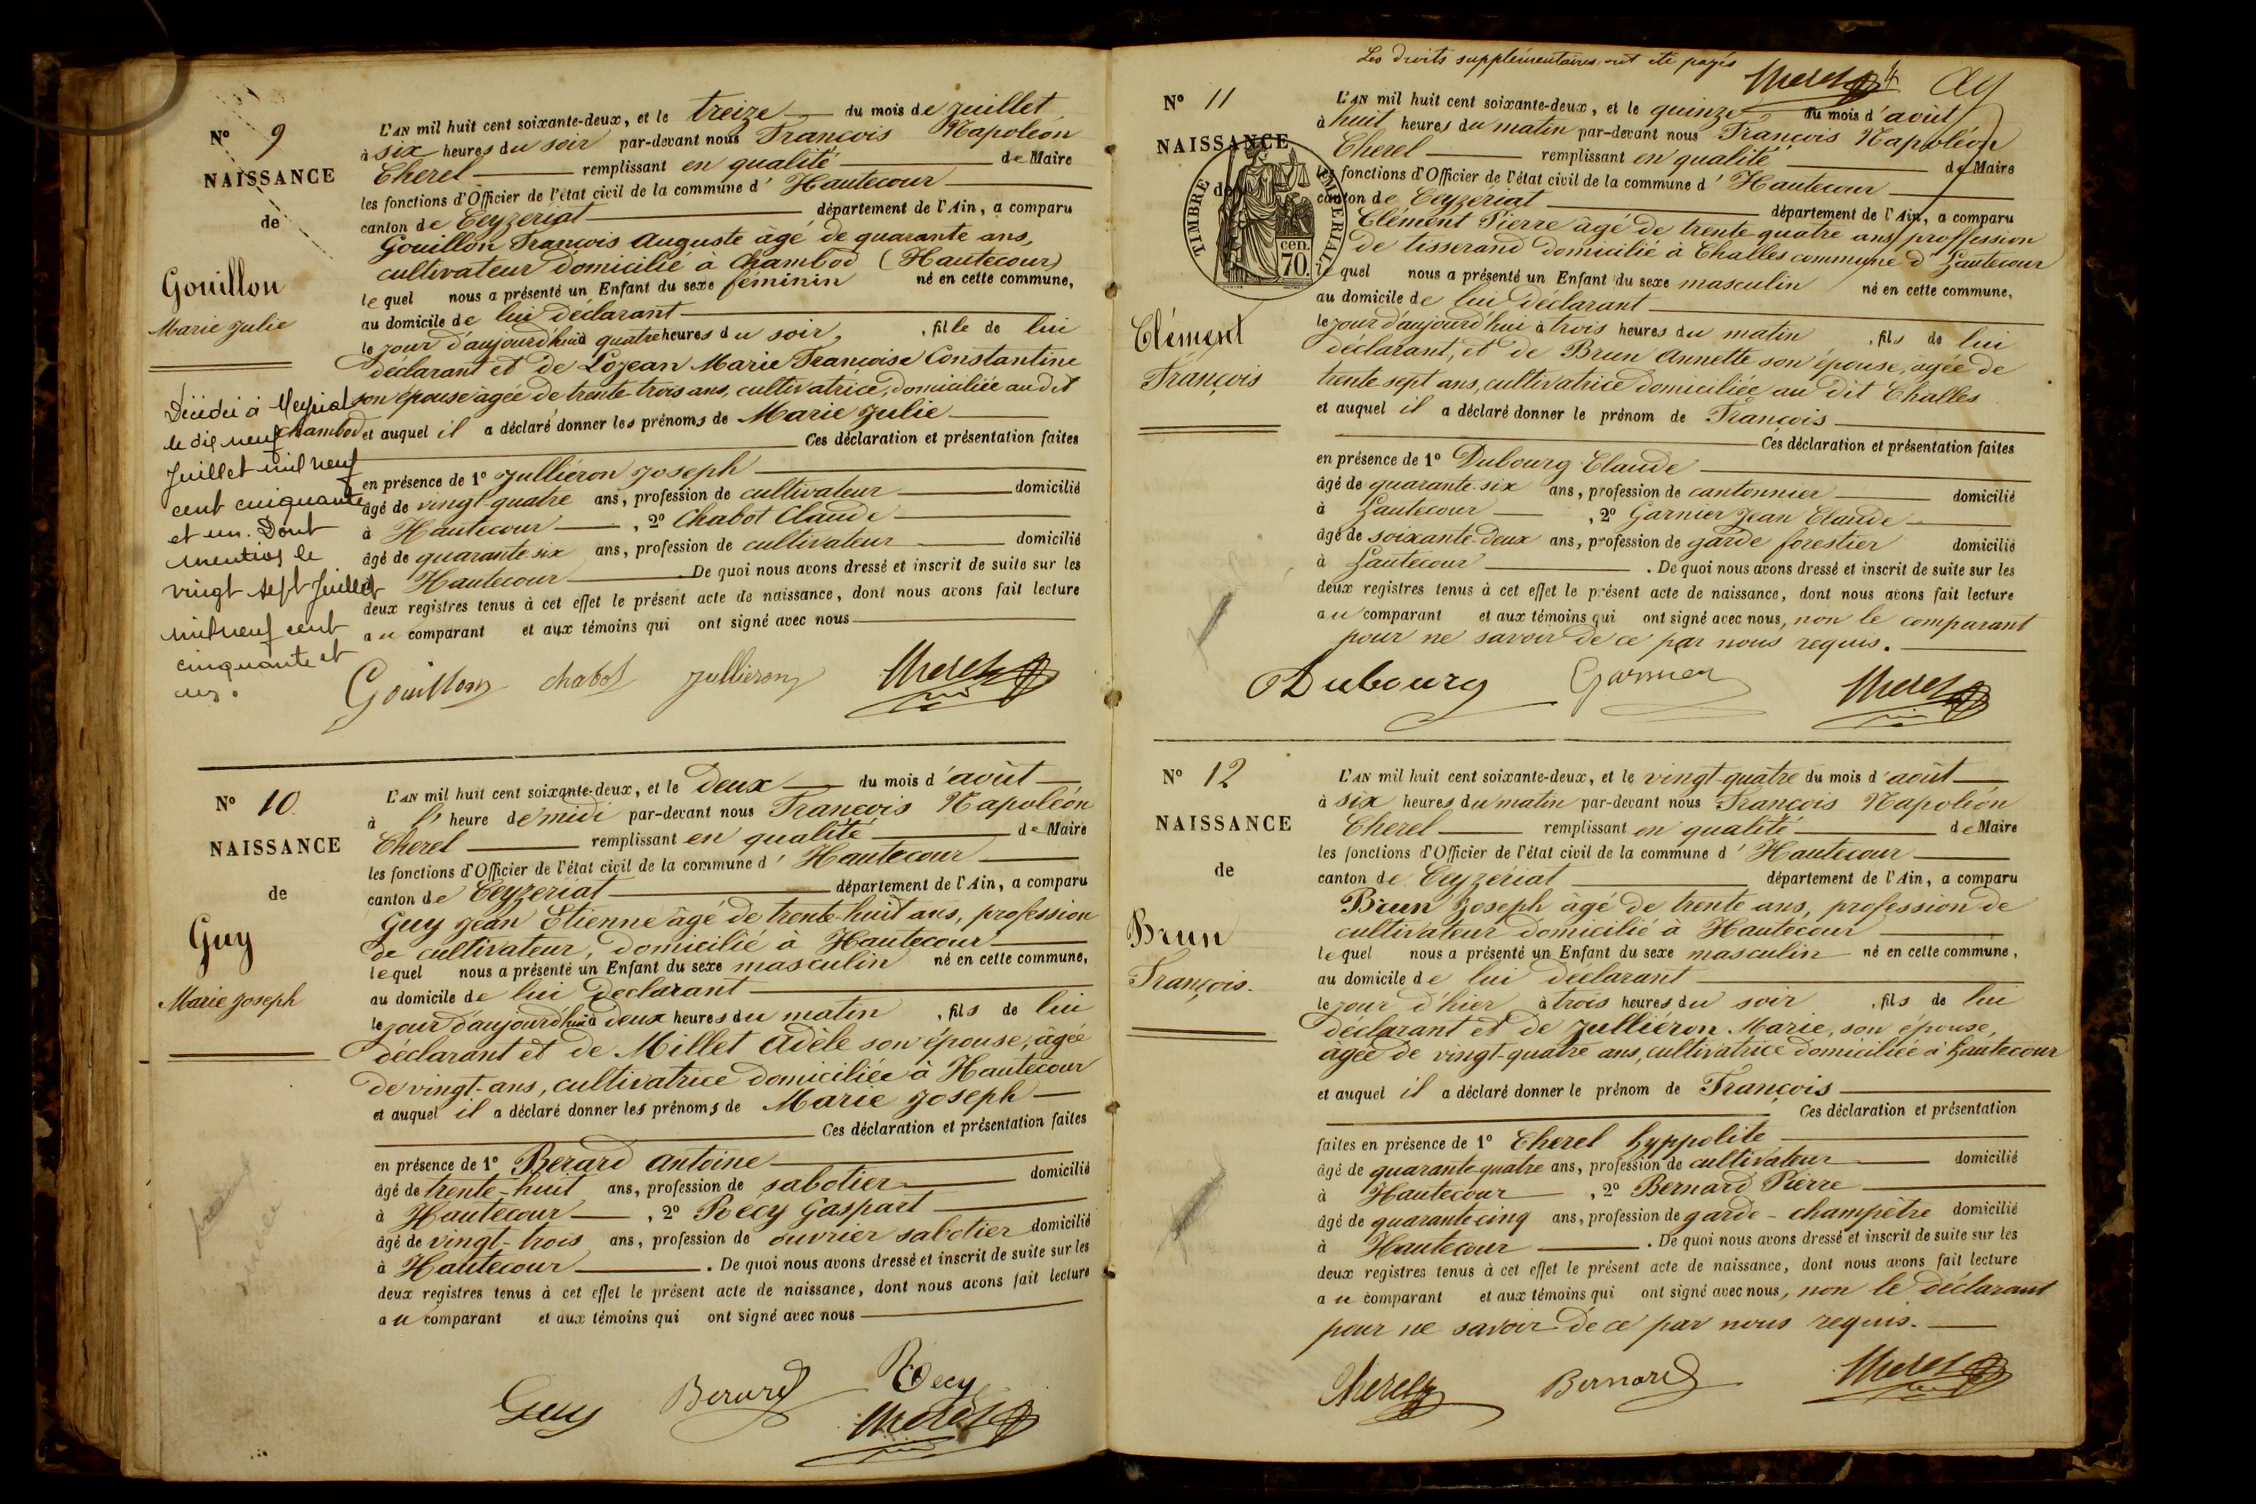 N° 9
NAISSANCE
de
Gouillon
Marie Julie
Décédée à Meyriat
le dix neuf
Juillet mil neuf
cent cinquante
et un. Dont
mention le
vingt sept Juillet
mil neuf cent
cinquante et
un.
L'AN mil huit cent soixante-deux, et le treize du mois de juillet
à six heures du soir par-devant nous François Napoléon
Cherel remplissant en qualité de Maire
les fonctions d'Officier de l'état civil de la commune d'Hautecour
canton de Ceyzeriat département de l'Ain, a comparu
Gouillon François Auguste âgé de quarante ans,
cultivateur domicilié à Chambod (Hautecour)
lequel nous a présenté un Enfant du sexe féminin né en cette commune,
au domicile de lui déclarant
le jour d'aujourd'hui à quatre heures du soir, fille de lui
déclarant et de Lojean Marie Françoise Constantine
son épouse âgée de trente-trois ans, cultivatrice, domiciliée au dit
chambod et auquel il a déclaré donner les prénoms de Marie Julie
Ces déclaration et présentation faites
en présence de 1° Julliéron Joseph
âgé de vingt-quatre ans, profession de cultivateur domicilié
à Hautecour, 2° Chabot Claude
âgé de quarante six ans, profession de cultivateur domicilié
à Hautecour De quoi nous avons dressé et inscrit de suite sur les
deux registres tenus à cet effet le présent acte de naissance, dont nous avons fait lecture
au comparant et aux témoins qui ont signé avec nous
Gouillon chabot Julliéron Cherel
N° 10
NAISSANCE
de
Guy
Marie Joseph
L'AN mil huit cent soixante-deux, et le Deux du mois d'août
à l'heure de midi par-devant nous François Napoléon
Cherel remplissant en qualité de Maire
les fonctions d'Officier de l'état civil de la commune d'Hautecour
canton de Ceyzeriat département de l'Ain, a comparu
Guy Jean Etienne âgé de trente-huit ans, profession
de cultivateur, domicilié à Hautecour
lequel nous a présenté un Enfant du sexe masculin né en cette commune,
au domicile de lui déclarant
le jour d'aujourd'hui à deux heures du matin, fils de lui
déclarant et de Millet Adèle son épouse, âgée
de vingt-ans, cultivatrice domiciliée à Hautecour
et auquel il a déclaré donner les prénoms de Marie Joseph
Ces déclaration et présentation faites
en présence de 1° Berard Antoine
âgé de trente-huit ans, profession de sabotier domicilié
à Hautecour, 2° Poecy Gaspart
âgé de vingt-trois ans, profession de ouvrier sabotier domicilié
à Hautecour. De quoi nous avons dressé et inscrit de suite sur les
deux registres tenus à cet effet le présent acte de naissance, dont nous avons fait lecture
au comparant et aux témoins qui ont signé avec nous
Guy Berard Poecy
Cherel
Les droits supplémentaires ont été payés
Cherel
N° 11
NAISSANCE
de
TIMBRE IMPERIAL
cen.
70.
Clément
François
L'AN mil huit cent soixante-deux, et le quinze du mois d'août
à huit heures du matin par-devant nous François Napoléon
Cherel remplissant en qualité de Maire
les fonctions d'Officier de l'état civil de la commune d'Hautecour
canton de Ceyzériat département de l'Ain, a comparu
Clément Pierre âgé de trente quatre ans, proffession
de tisserand domicilié à Challes commune d'hautecour
le quel nous a présenté un Enfant du sexe masculin né en cette commune,
au domicile de lui déclarant
le jour d'aujourd'hui à trois heures du matin, fils de lui
déclarant, et de Brun Annette son épouse, âgée de
trente sept ans, cultivatrice domiciliée au dit Challes
et auquel il a déclaré donner le prénom de François
Ces déclaration et présentation faites
en présence de 1° Dubourg Claude
âgé de quarante-six ans, profession de cantonnier domicilié
à hautecour, 2° Garnier Jean Claude
âgé de soixante-deux ans, profession de garde forestier domicilié
à hautecour. De quoi nous avons dressé et inscrit de suite sur les
deux registres tenus à cet effet le présent acte de naissance, dont nous avons fait lecture
au comparant et aux témoins qui ont signé avec nous, non le comparant
pour ne savoir de ce par nous requis.
Dubourg Garnier Cherel
N° 12
NAISSANCE
de
Brun
François.
L'AN mil huit cent soixante-deux, et le vingt-quatre du mois d'août
à six heures du matin par-devant nous François Napoléon
Cherel remplissant en qualité de Maire
les fonctions d'Officier de l'état civil de la commune d'Hautecour
canton de Ceyzeriat département de l'Ain, a comparu
Brun Joseph âgé de trente ans, profession de
cultivateur domicilié à Hautecour
lequel nous a présenté un Enfant du sexe masculin né en cette commune,
au domicile de lui déclarant
le jour d'hier à trois heures du soir, fils de lui
déclarant et de Julliéron Marie, son épouse,
âgée de vingt-quatre ans, cultivatrice domiciliée à hautecour
et auquel il a déclaré donner le prénom de François
Ces déclaration et présentation
faites en présence de 1° Cherel hyppolite
âgé de quarante-quatre ans, profession de cultivateur domicilié
à Hautecour, 2° Bernard Pierre
âgé de quarante cinq ans, profession de garde-champêtre domicilié
à Hautecour. De quoi nous avons dressé et inscrit de suite sur les
deux registres tenus à cet effet le présent acte de naissance, dont nous avons fait lecture
au comparant et aux témoins qui ont signé avec nous, non le déclarant
pour ne savoir de ce par nous requis.
Cherel Bernard Cherel